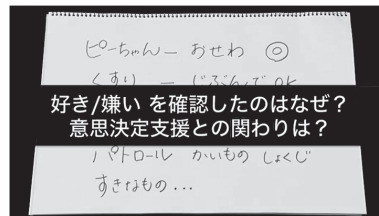 ピーちゃん ー おせわ ◎
くすり ー じぶんで OK
好き/嫌い を確認したのはなぜ?
意思決定支援との関わりは?
パトロール かいもの しょくじ
すきなもの...